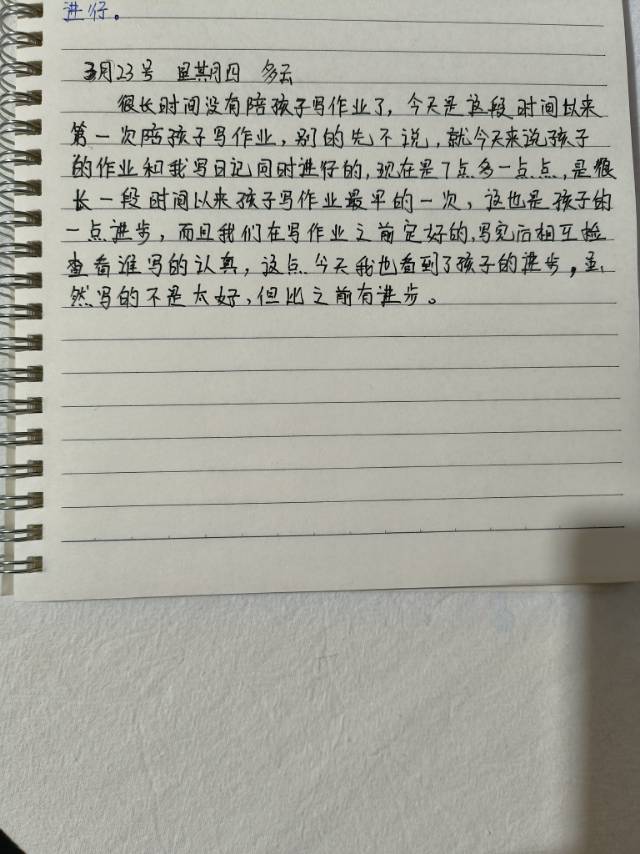 进行。
五月23号 星期四 多云
很长时间没有陪孩子写作业了，今天是这段时间以来
第一次陪孩子写作业，别的先不说，就今天来说孩子
的作业和我写日记同时进行的，现在是7点多一点点，是很
长一段时间以来孩子写作业最早的一次，这也是孩子的
一点进步，而且我们在写作业之前定好的，写完后相互检
查看谁写的认真，这点今天我也看到了孩子的进步，虽
然写的不是太好，但比之前有进步。